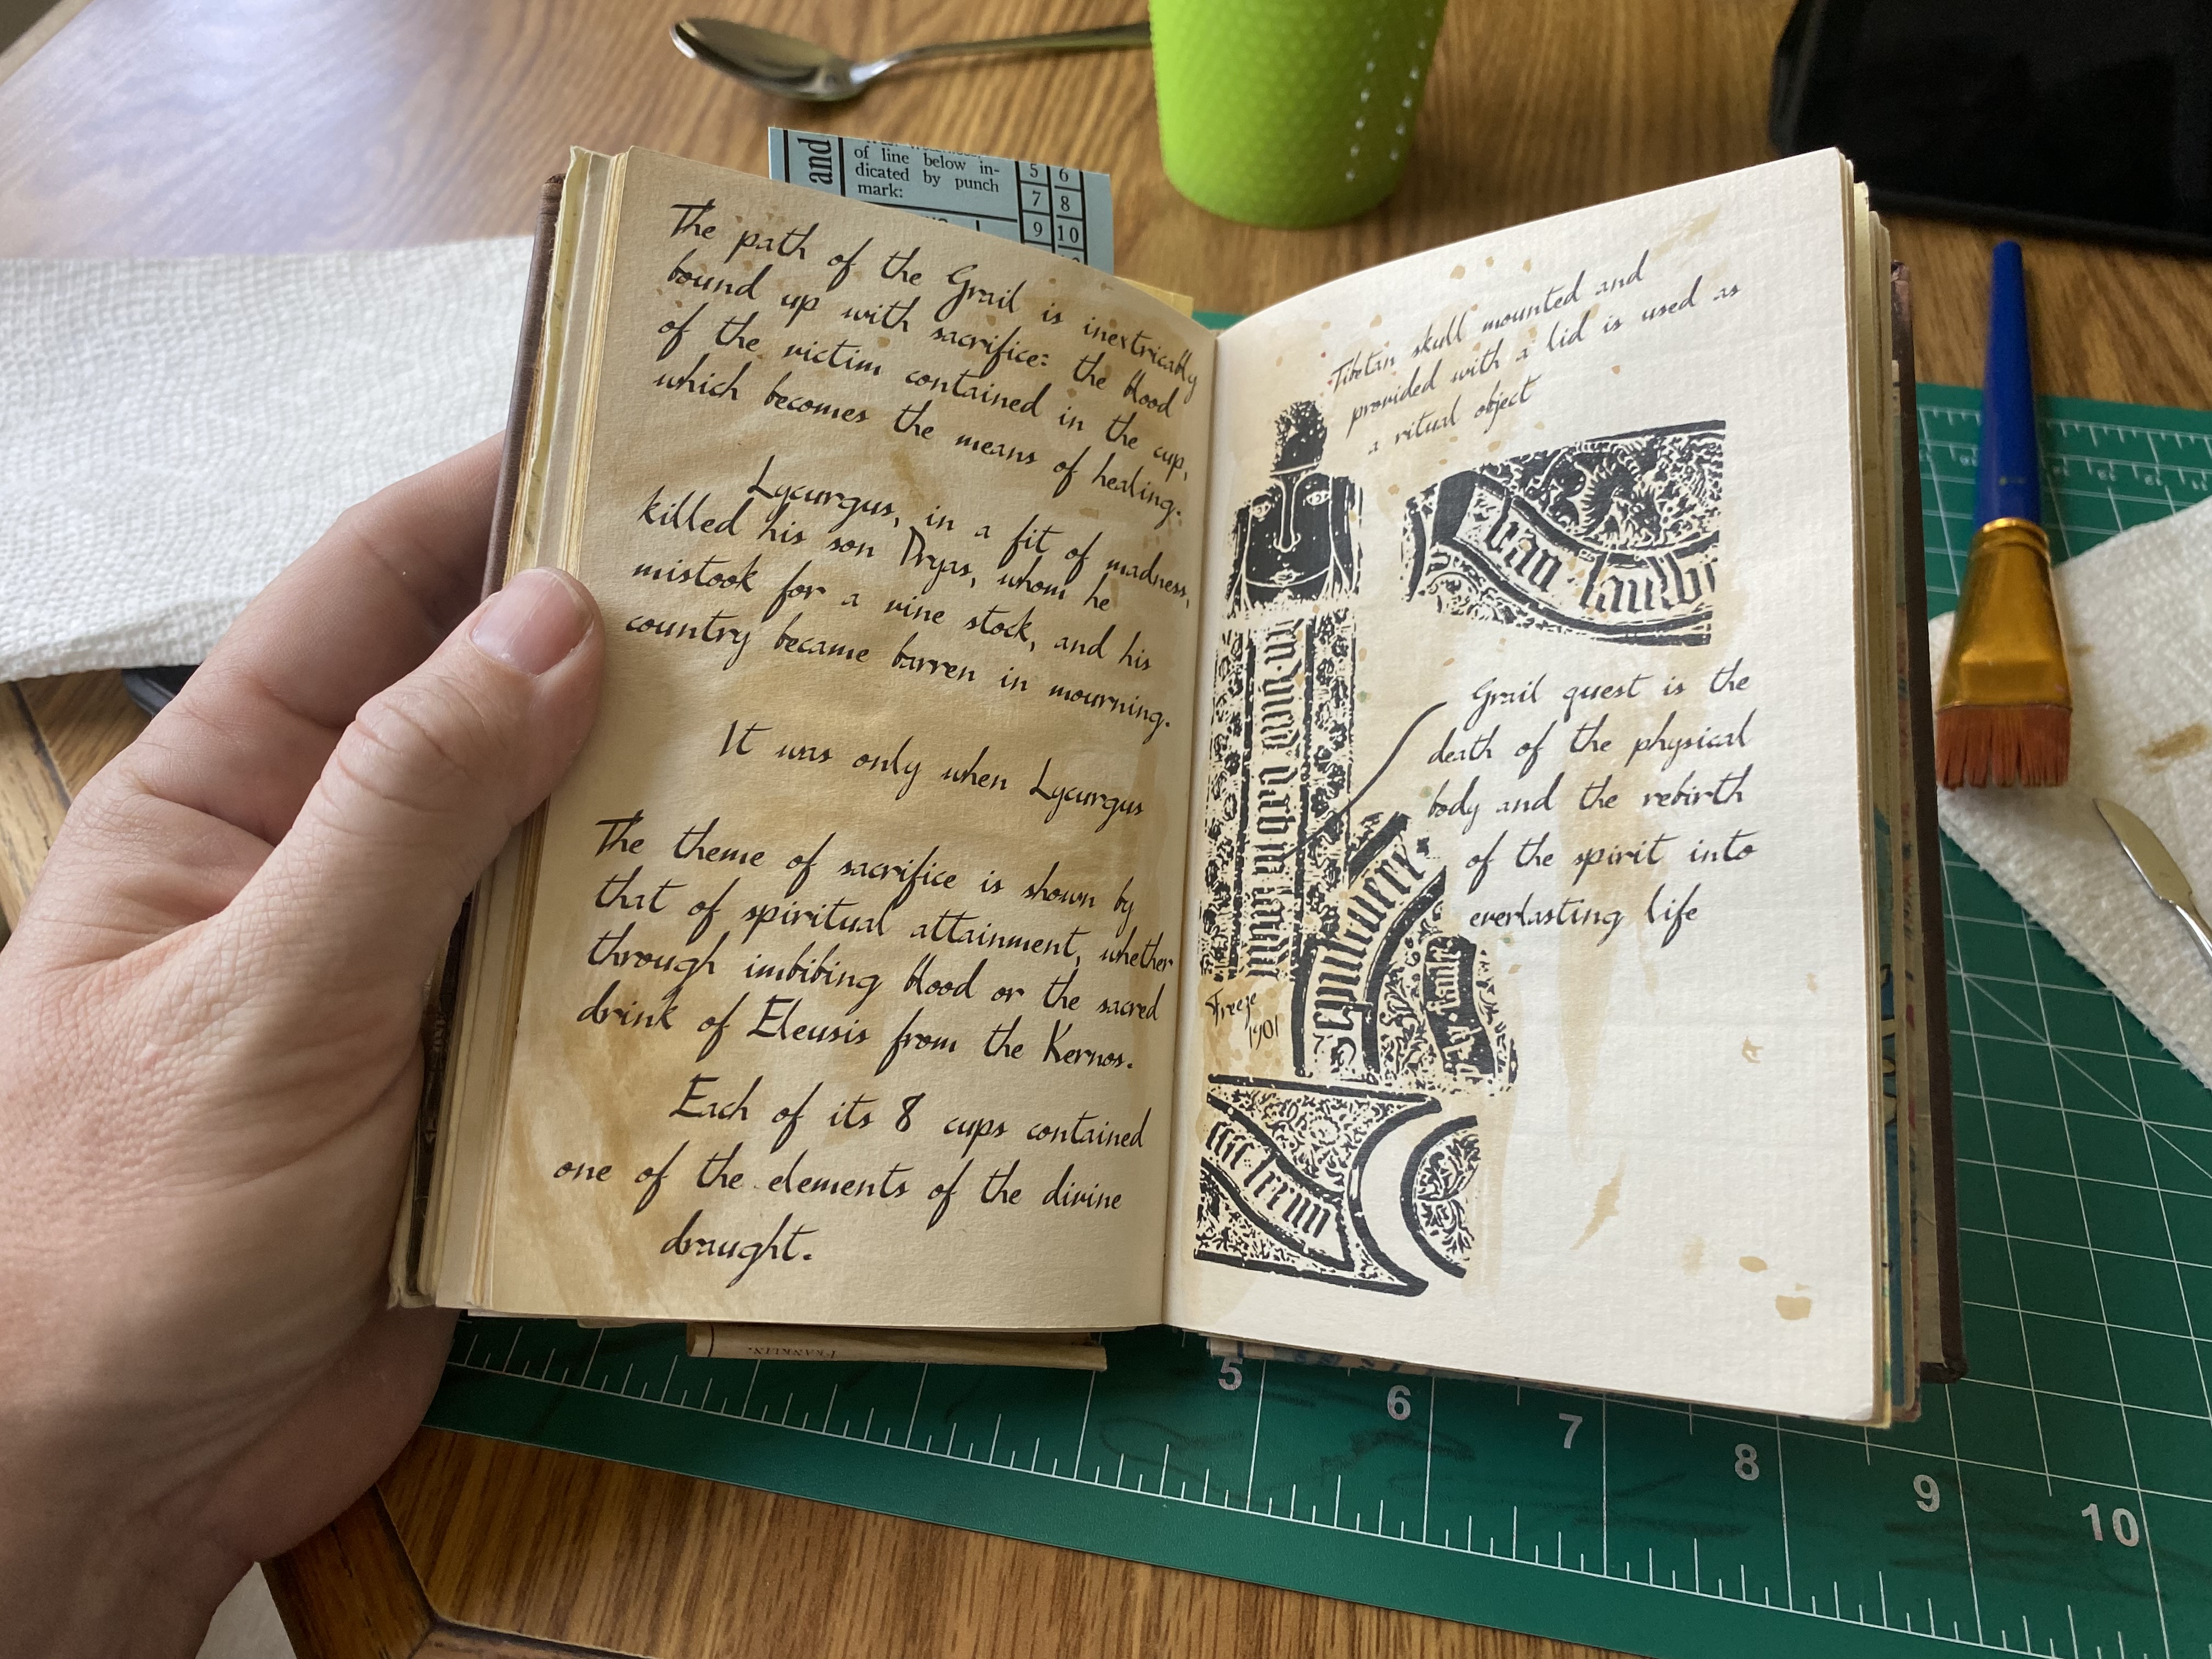 and
of line below in-
dicated by punch
mark:
5 6
7 8
9 10
The path of the Grail is inextricably
bound up with sacrifice: the blood
of the victim contained in the cup,
which becomes the means of healing.
Lycurgus, in a fit of madness,
killed his son Dryas, whom he
mistook for a vine stock, and his
country became barren in mourning.
It was only when Lycurgus
The theme of sacrifice is shown by
that of spiritual attainment, whether
through imbibing blood or the sacred
drink of Eleusis from the Kernos.
Each of its 8 cups contained
one of the elements of the divine
draught.
Tibetan skull mounted and
provided with a lid is used as
a ritual object
van
Grail quest is the
death of the physical
body and the rebirth
of the spirit into
everlasting life
Freeze
1901
FRANKLIN.
5 6 7 8 9 10